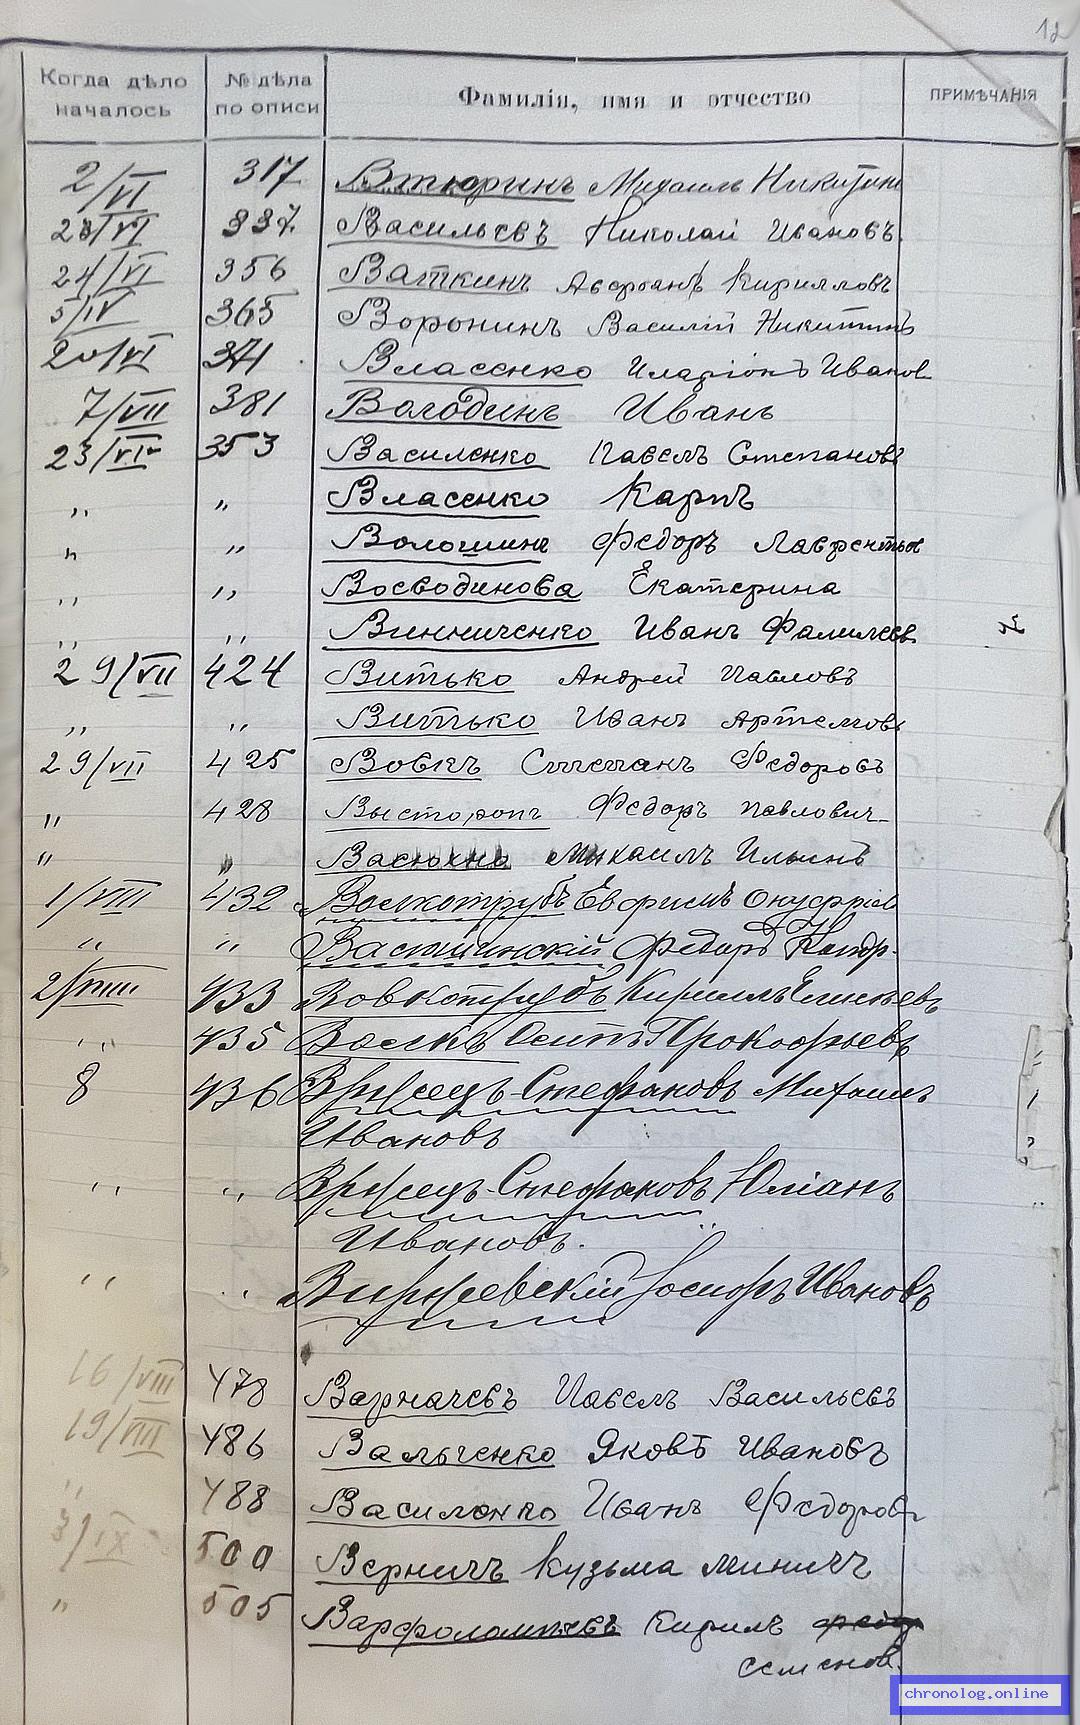 12
Когда дѣло началось № дѣла по описи Фамилія, имя и отчество ПРИМѢЧАНІЯ
2/VI 317 Втюринъ Михаилъ Никитин
23/VI 337 Васильевъ Николай Ивановъ
24/VI 356 Ваткинъ Кирилловъ
5/IV 365 Воронинъ Василій Никитинъ
20/VI 371 Власенко Иларіонъ Иванов
7/VII 381 Володинъ Иванъ
23/VI 353 Василенко Павелъ Степановъ
" " Власенко Карпъ
" " Волошинъ Федоръ Лаврентьев
" " Воеводинова Екатерина
" " Винниченко Иванъ Фалилеев
29/VII 424 Витько Андрей Павловъ
" " Витько Иванъ Артемовъ
29/VII 425 Вовкъ Федоровъ
" 428 Выстороп Федоръ Павлович
" " Михаилъ Ильинъ
1/VIII 432 Волкотрубъ Евфимъ Онуфріев
" " Федоръ
2/VIII 433 Вовкотрубъ Кириллъ Елисѣевъ
" 435 Волкъ Осипъ Прокофьевъ
8 436 Вржесцъ-Стефановъ Михаилъ
Ивановъ
" " Вржесцъ-Стефановъ Юліанъ
Ивановъ.
" " Виржевскій Іосифъ Ивановъ
16/VIII 478 Варначевъ Павелъ Васильевъ
19/VIII 486 Вальченко Яковъ Ивановъ
" 488 Василенко Иванъ Федоровъ
3/IX 500 Верничъ Кузьма Миничъ
" 505 Варфоломѣевъ Кирилъ
Семенов.
chronolog.online